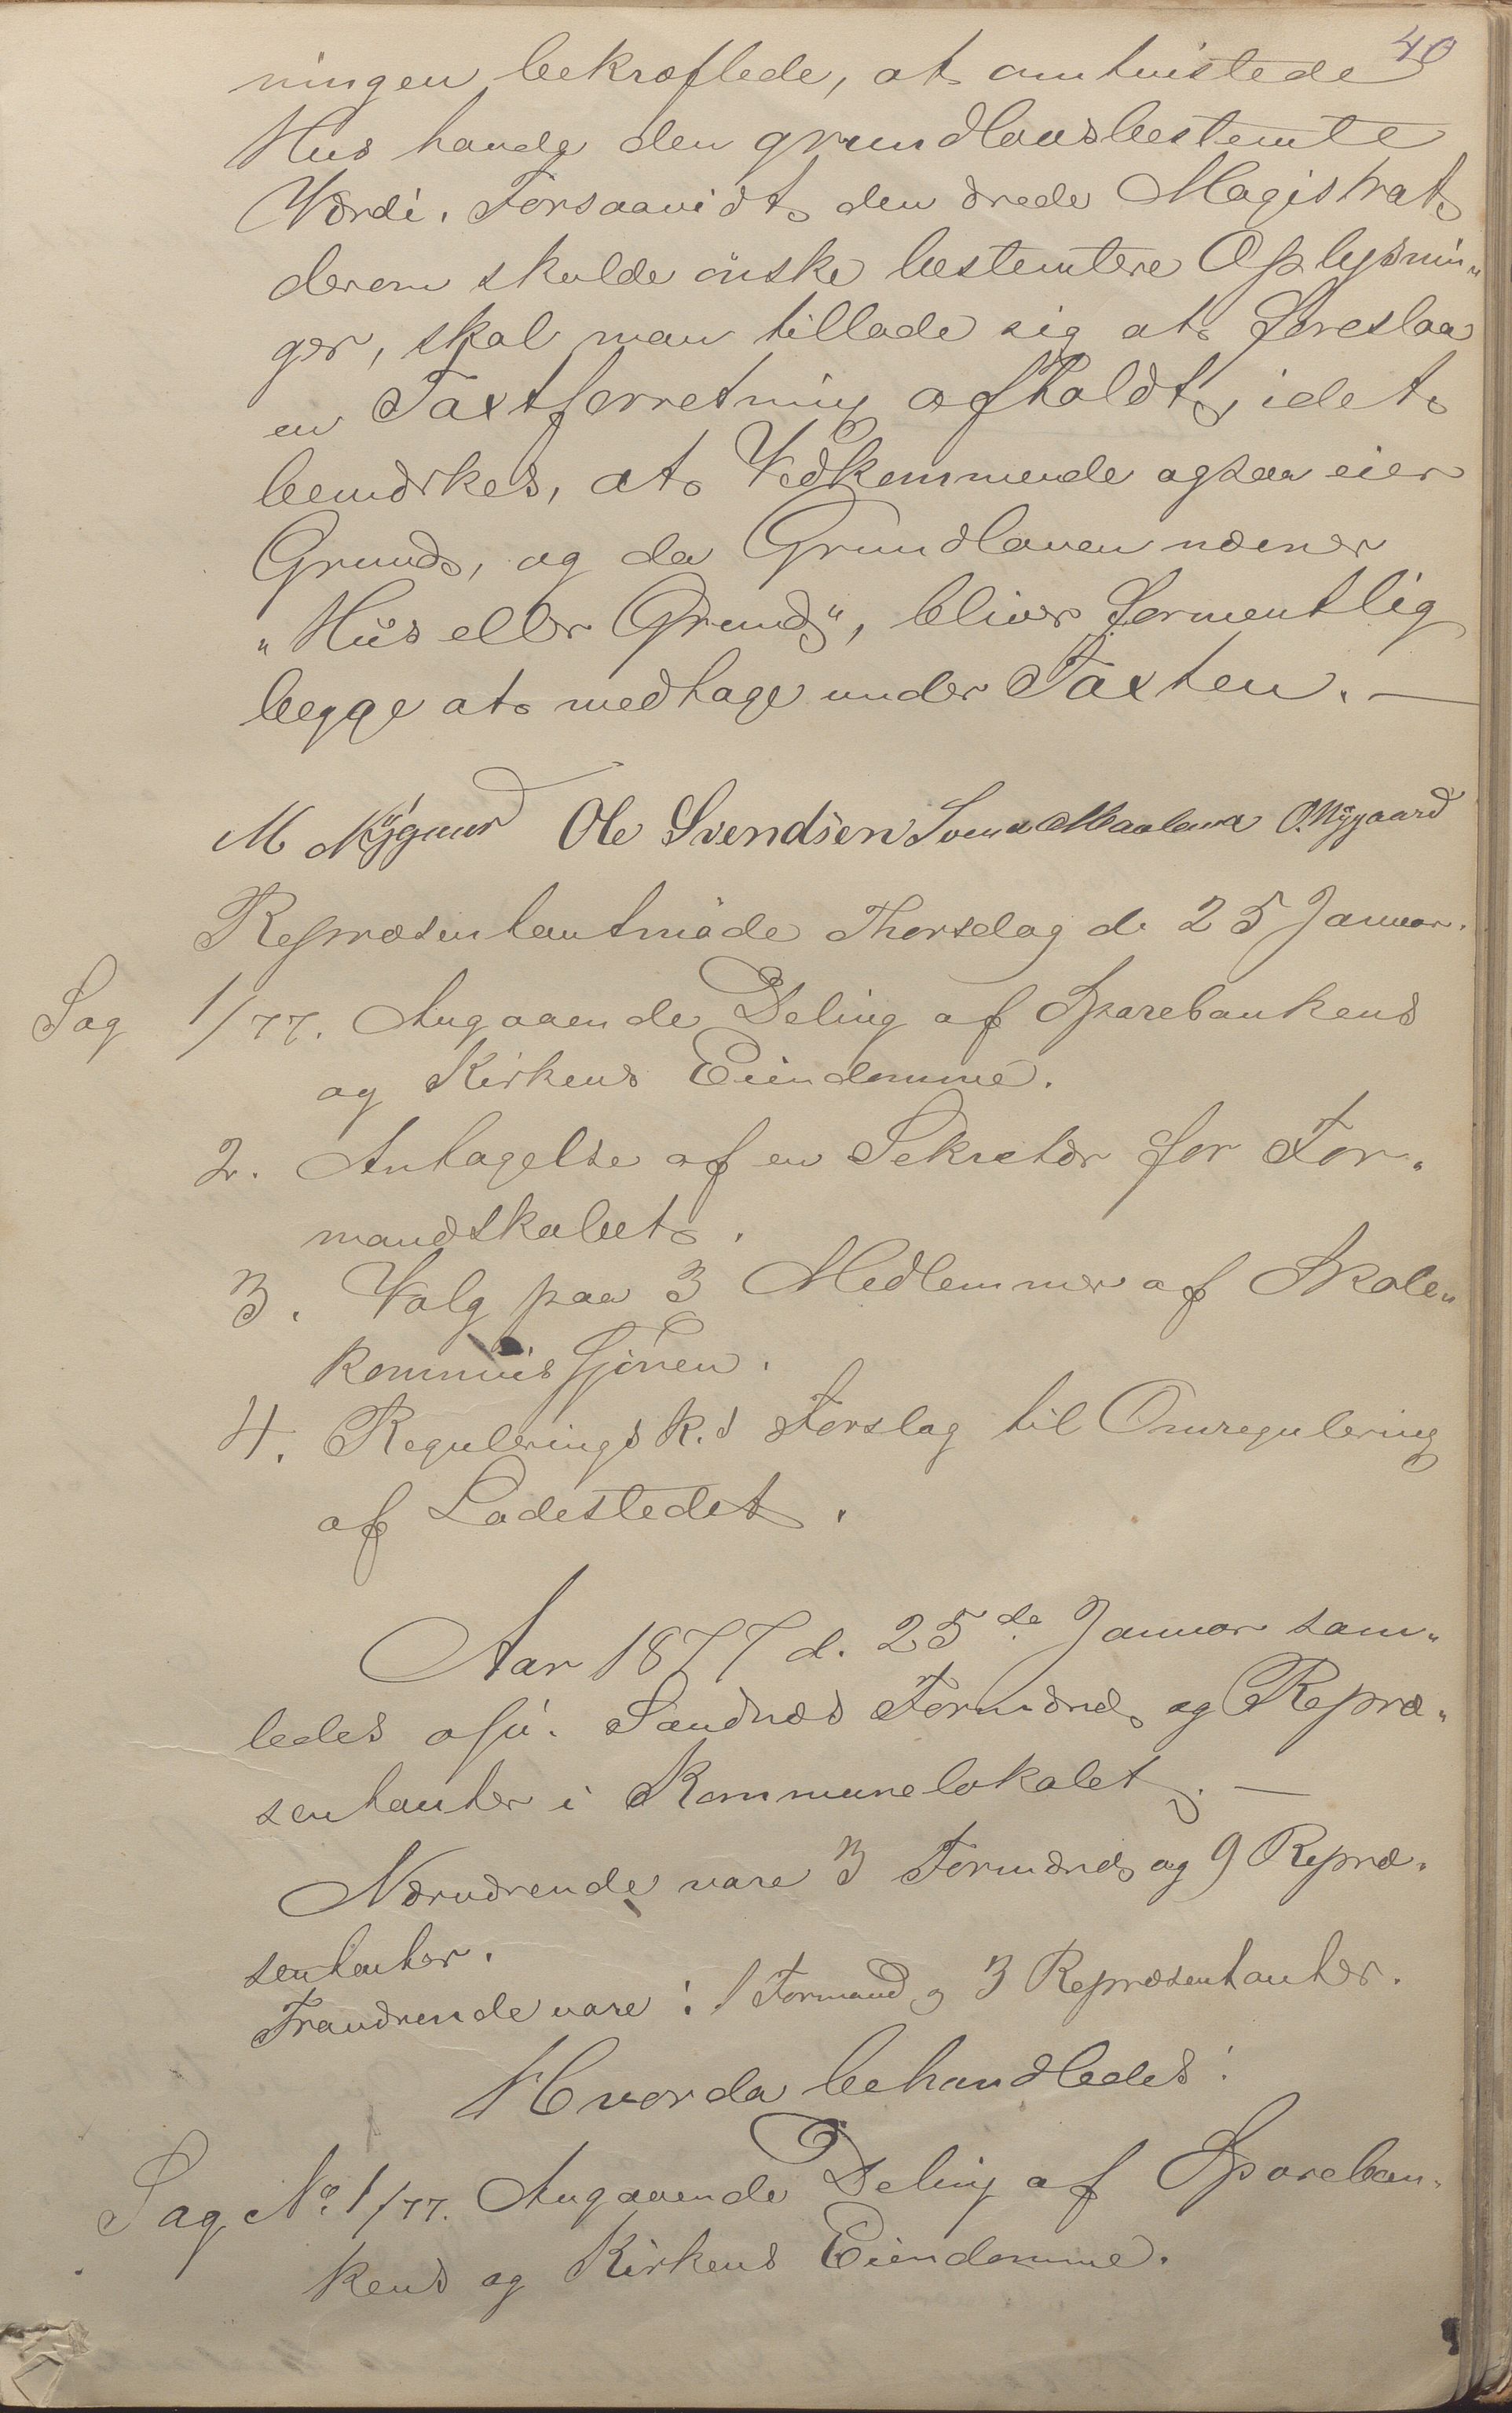 40
ningen bekræftede, at omtvistede
Hus havde den grundlovsbestemte
Værdi. Forsaavidt den ærede Magistrat
derom skulde ønske bestemtere Oplysnin„
ger, skal man tillade sig at foreslaa
en Taxtforretning afholdt, idet
bemærkes, at Vedkommende ogsaa eier
Grund, og da Grundloven nævner
„Hus eller Grund“, bliver formentlig
begge at medtage under Taxten. —
M Nygaard Ole Svendsen Svend Maaland O. Nygaard
Repræsentantmøde Thorsdag d. 25 Januar.
Sag 1/77. Angaaende Deling af Sparebankens
og Kirkens Eiendomme.
2. Antagelse af en Sekretær for For„
mandskabet.
3. Valg paa 3 Medlemmer af Skole„
kommissjonen.
4. Regulerings k.s Forslag til Omregulering
af Ladestedet.
Aar 1877 d. 25de Januar sam„
ledes afv. Sandnæs Formænd og Repræ„
sentanter i Kommunelokalet. —
Nærværende vare 3 Formænd og 9 Repræ„
sentanter.
Fraværende vare: 1 Formand og 3 Repræsentanter.
Hvorda behandledes:
Sag No. 1/77. Angaaende Deling af Spareban„
kens og Kirkens Eiendomme.